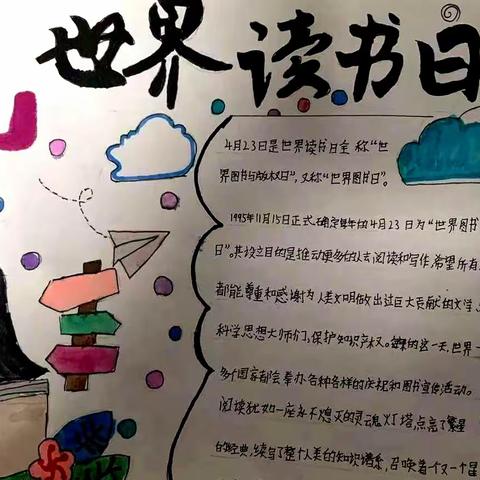 世界读书日
4月23日是世界读书日全称“世
界图书与版权日”，又称“世界图书日”。
1995年11月15日正式确定每年的4月23日为“世界图书
日”。其设立目的是推动更多的人去阅读和写作，希望所有
都能尊重和感谢为人类文明做出过巨大贡献的文学、
科学思想大师们，保护知识产权。每年的这一天，世界一
多个国家都会举办各种各样的庆祝和图书宣传活动。
阅读犹如一座永不熄灭的灵魂灯塔，点亮了繁星
的经典，续写了整个人类的知识谱系，召唤着一个又一个星